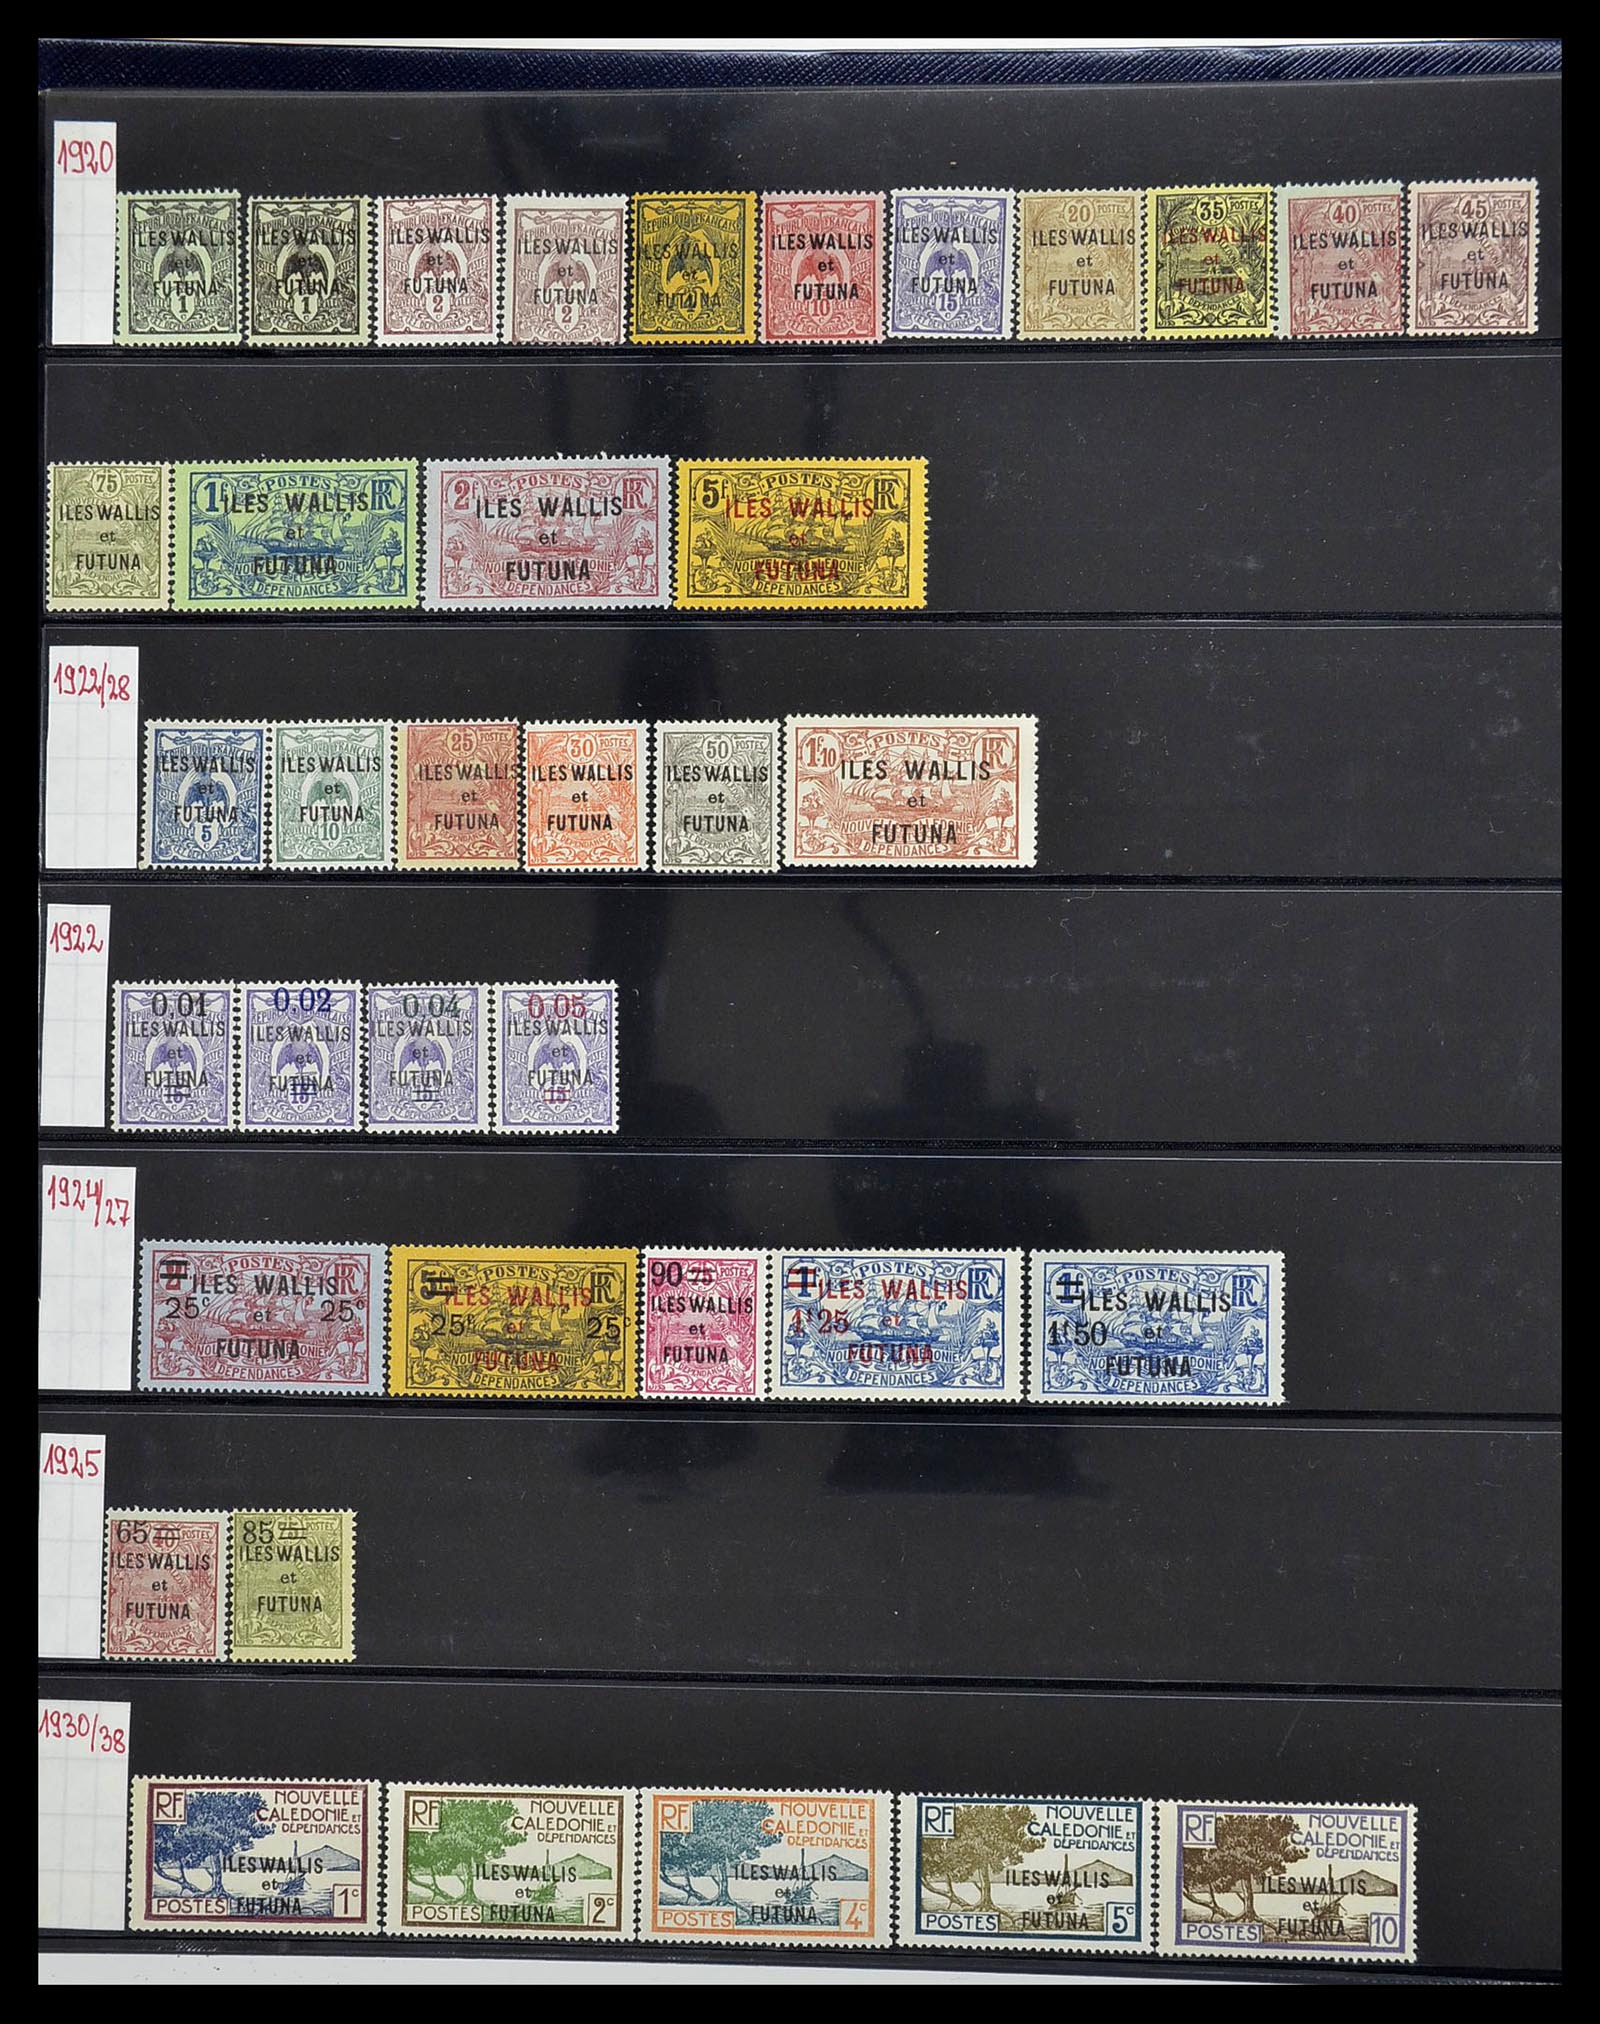 1920
RÉPUBLIQUE FRANÇAISE
ILES WALLIS
et
FUTUNA
1
ILES WALLIS
et
FUTUNA
1
ILES WALLIS
et
FUTUNA
2
ILES WALLIS
et
FUTUNA
2
ILES WALLIS
et
FUTUNA
4
ILES WALLIS
et
FUTUNA
10
ILES WALLIS
et
FUTUNA
15
20 POSTES
ILES WALLIS
et
FUTUNA
35 POSTES
ILES WALLIS
et
FUTUNA
40 POSTES
ILES WALLIS
et
FUTUNA
45 POSTES
ILES WALLIS
et
FUTUNA
75 POSTES
ILES WALLIS
et
FUTUNA
1f POSTES RF
ILES WALLIS
et
FUTUNA
DÉPENDANCES
2f POSTES RF
ILES WALLIS
et
FUTUNA
DÉPENDANCES
5f POSTES RF
ILES WALLIS
et
FUTUNA
DÉPENDANCES
1922/28
ILES WALLIS
et
FUTUNA
5
ILES WALLIS
et
FUTUNA
10
25 POSTES
ILES WALLIS
et
FUTUNA
30 POSTES
ILES WALLIS
et
FUTUNA
50 POSTES
ILES WALLIS
et
FUTUNA
1f.10 POSTES RF
ILES WALLIS
et
FUTUNA
DÉPENDANCES
1922
0,01
ILES WALLIS
et
FUTUNA
15
0,02
ILES WALLIS
et
FUTUNA
15
0,04
ILES WALLIS
et
FUTUNA
15
0,05
ILES WALLIS
et
FUTUNA
15
1924/27
2f POSTES RF
ILES WALLIS
25c et 25c
FUTUNA
DÉPENDANCES
5f POSTES RF
ILES WALLIS
25c et 25c
FUTUNA
DÉPENDANCES
90 75
ILES WALLIS
et
FUTUNA
1f POSTES RF
ILES WALLIS
1f25 et
FUTUNA
DÉPENDANCES
1f POSTES RF
ILES WALLIS
1f50 et
FUTUNA
DÉPENDANCES
1925
65 40 POSTES
ILES WALLIS
et
FUTUNA
85 75 POSTES
ILES WALLIS
et
FUTUNA
1930/38
RF NOUVELLE
CALÉDONIE ET
DÉPENDANCES
ILES WALLIS
et
FUTUNA
POSTES 1c
RF NOUVELLE
CALÉDONIE ET
DÉPENDANCES
ILES WALLIS
et
FUTUNA
POSTES 2c
RF NOUVELLE
CALÉDONIE ET
DÉPENDANCES
ILES WALLIS
et
FUTUNA
POSTES 4c
RF NOUVELLE
CALÉDONIE ET
DÉPENDANCES
ILES WALLIS
et
FUTUNA
POSTES 5c
RF NOUVELLE
CALÉDONIE ET
DÉPENDANCES
ILES WALLIS
et
FUTUNA
POSTES 10